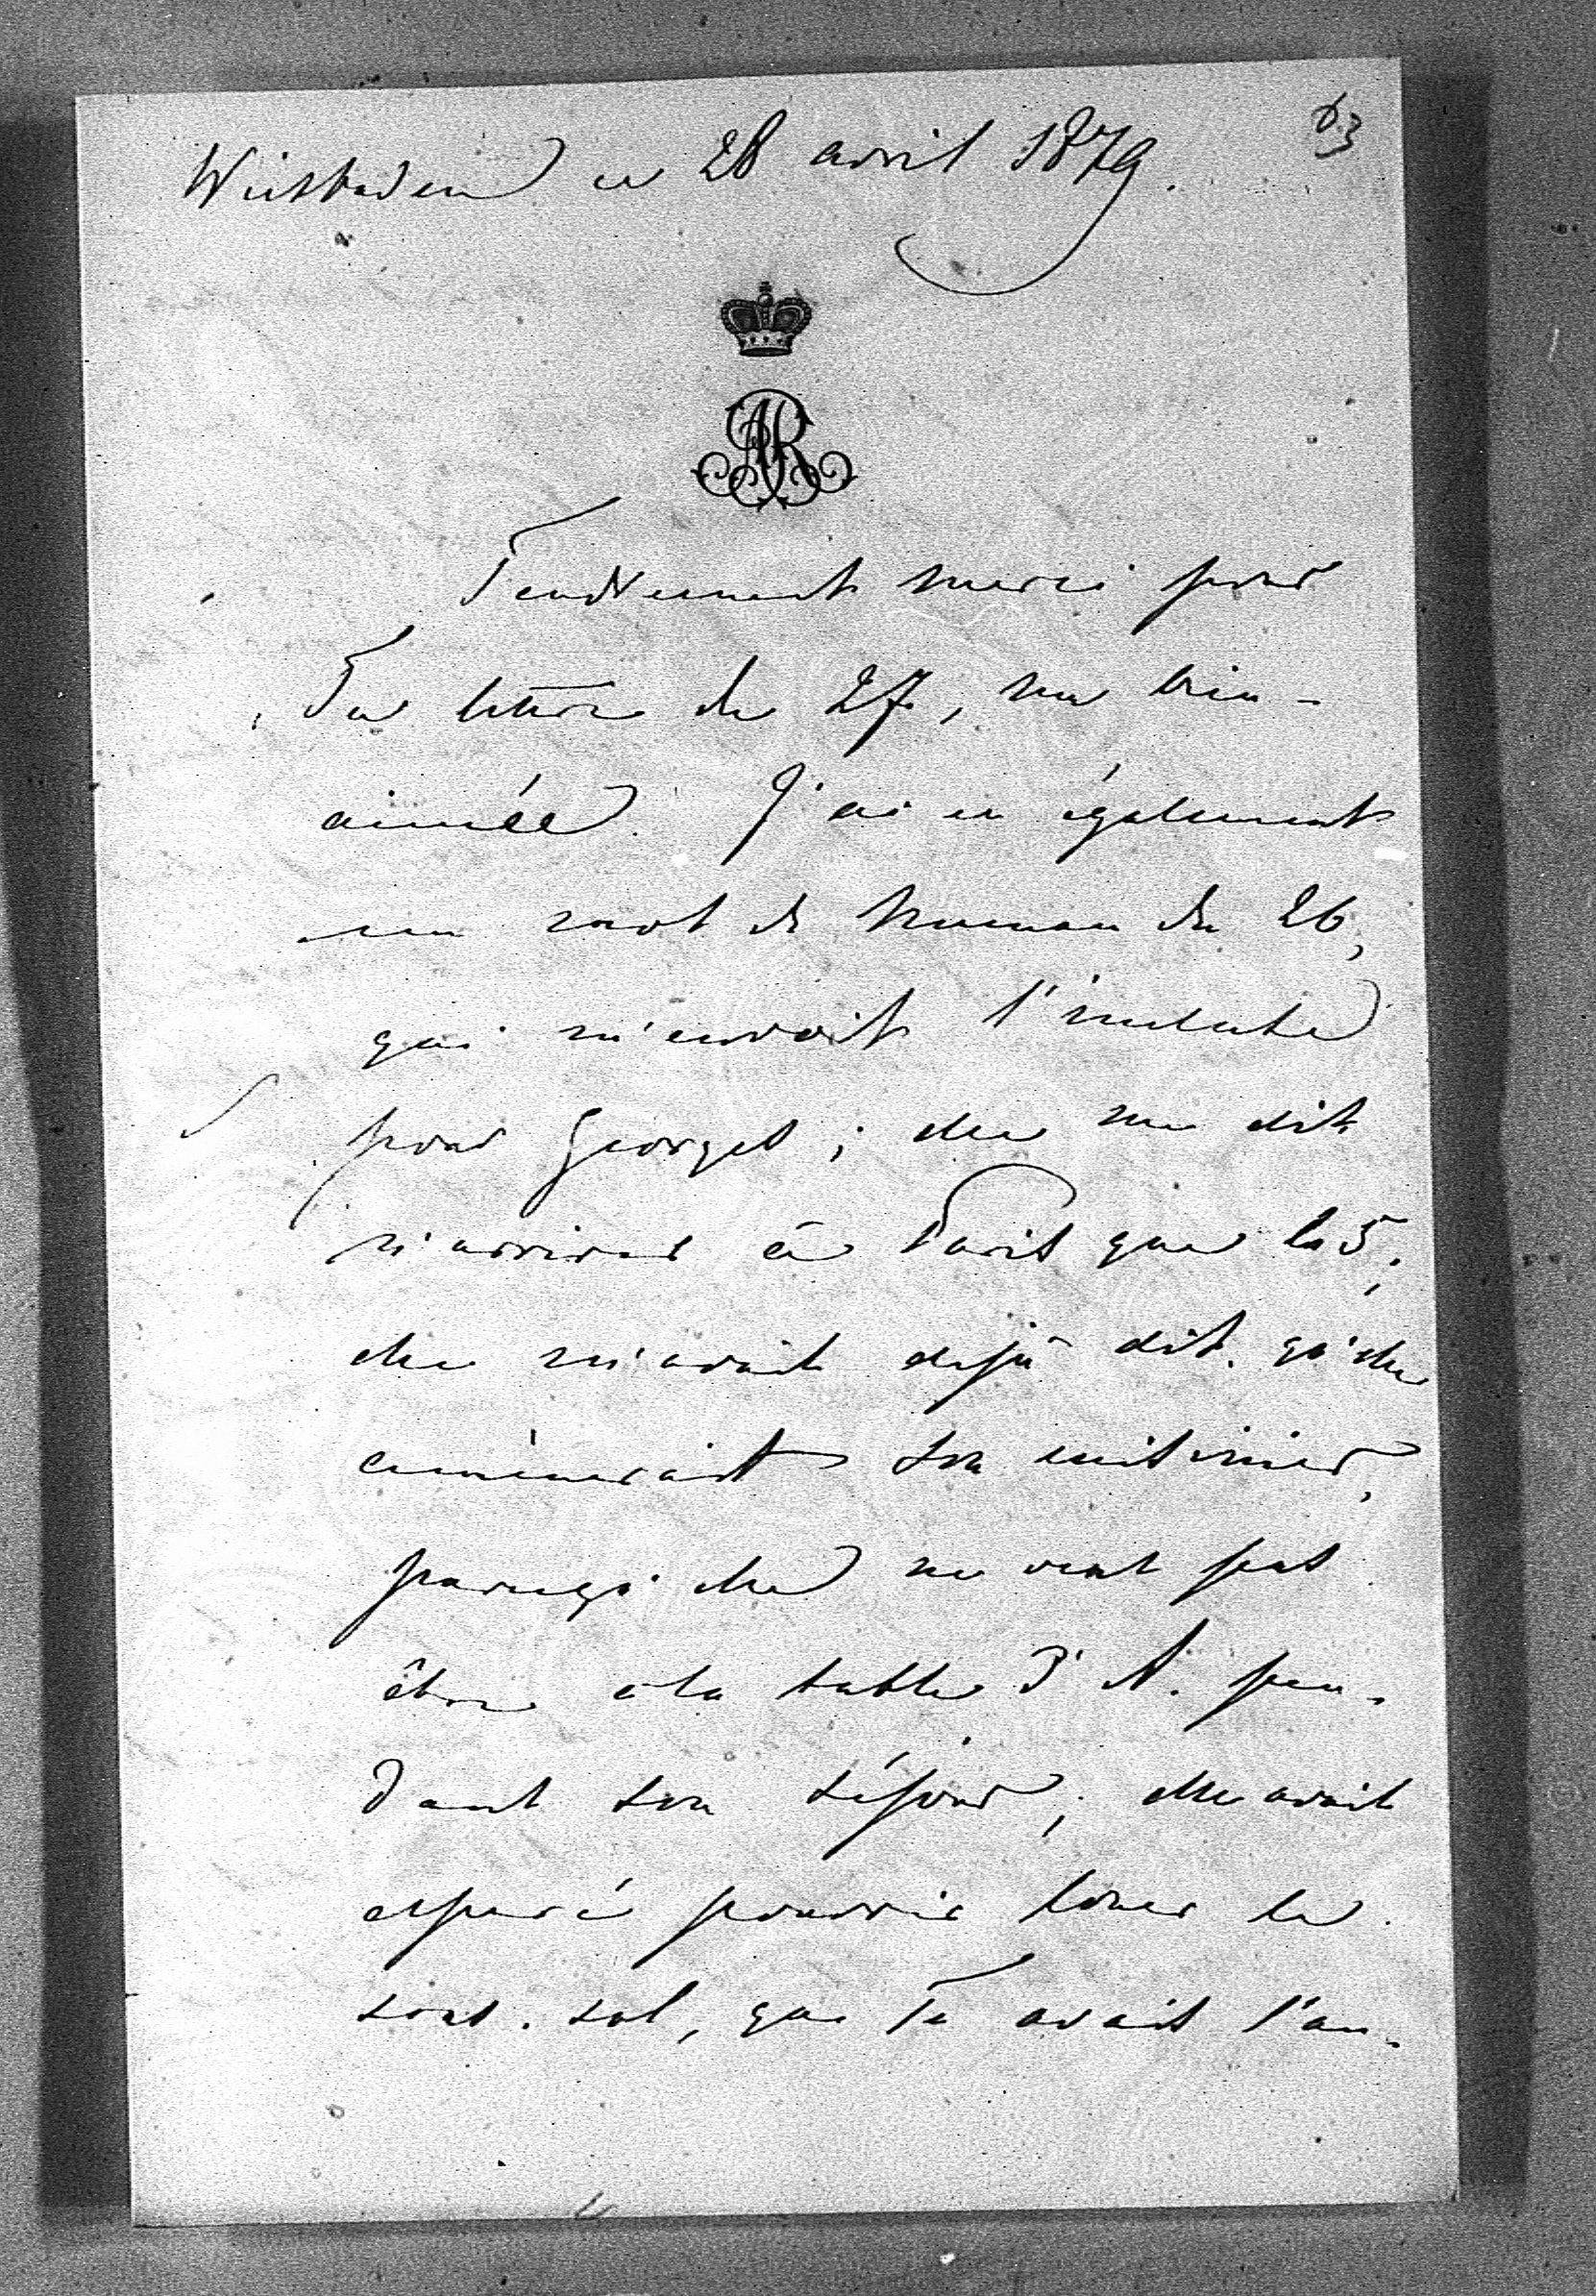 63
Wiesbaden ce 28 avril 1879.
AR
Tendrement merci pour
Ta lettre du 27, ma bien-
aimée. J'ai eu également
un mot de maman du 26,
qui m'envoit l'incluse
pour Georges; elle me dit
n'arriver à Paris que le 5;
elle m'avait dejà dit qu'elle
amènerait son cuisinier,
parcequ'elle ne veut pas
être à la table d'A. pen-
dant son séjour; elle avait
esperé pouvoir louer le
sous-sol, que Tu avais l'an-